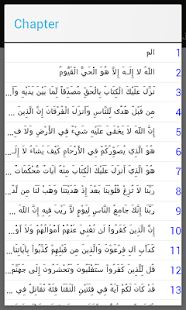 Chapter
الم 1
اللَّهُ لَا إِلَٰهَ إِلَّا هُوَ الْحَيُّ الْقَيُّومُ 2
نَزَّلَ عَلَيْكَ الْكِتَابَ بِالْحَقِّ مُصَدِّقًا لِّمَا بَيْنَ يَدَيْهِ وَأَ... 3
مِن قَبْلُ هُدًى لِّلنَّاسِ وَأَنزَلَ الْفُرْقَانَ إِنَّ الَّذِينَ ... 4
إِنَّ اللَّهَ لَا يَخْفَىٰ عَلَيْهِ شَيْءٌ فِي الْأَرْضِ وَلَا فِ... 5
هُوَ الَّذِي يُصَوِّرُكُمْ فِي الْأَرْحَامِ كَيْفَ يَشَاءُ لَا إِ... 6
هُوَ الَّذِي أَنزَلَ عَلَيْكَ الْكِتَابَ مِنْهُ آيَاتٌ مُّحْكَمَاتٌ ... 7
رَبَّنَا لَا تُزِغْ قُلُوبَنَا بَعْدَ إِذْ هَدَيْتَنَا وَهَبْ لَنَا مِن لَّدُ... 8
رَبَّنَا إِنَّكَ جَامِعُ النَّاسِ لِيَوْمٍ لَّا رَيْبَ فِيهِ إِنَّ اللَّ... 9
إِنَّ الَّذِينَ كَفَرُوا لَن تُغْنِيَ عَنْهُمْ أَمْوَالُهُمْ وَلَا أَوْ... 10
كَدَأْبِ آلِ فِرْعَوْنَ وَالَّذِينَ مِن قَبْلِهِمْ كَذَّبُوا بِآيَاتِنَا... 11
قُل لِّلَّذِينَ كَفَرُوا سَتُغْلَبُونَ وَتُحْشَرُونَ إِلَىٰ جَهَنَّمَ... 12
قَدْ كَانَ لَكُمْ آيَةٌ فِي فِئَتَيْنِ الْتَقَتَا فِئَةٌ تُقَاتِلُ فِي ... 13